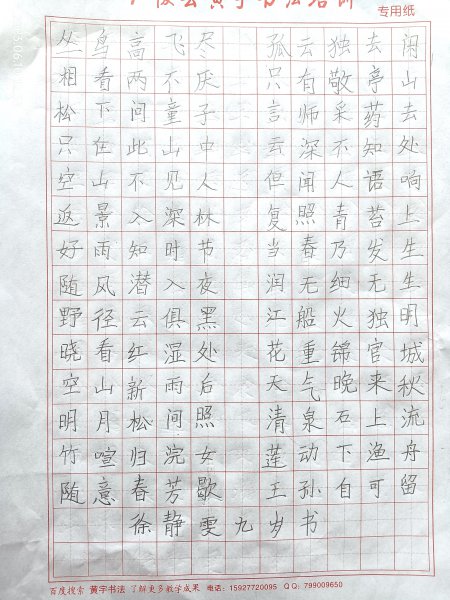 专用纸
丛鸟高飞尽 孤云独去闲
相看两不厌 只有敬亭山
松下问童子 言师采药去
只在此山中 云深不知处
空山不见人 但闻人语响
返景入深林 复照青苔上
好雨知时节 当春乃发生
随风潜入夜 润无细无生
野径云俱黑 江船火独明
晓看红湿处 花重锦官城
空山新雨后 天气晚来秋
明月松间照 清泉石上流
竹喧归浣女 莲动下渔舟
随意春芳歇 王孙自可留
徐静雯九岁书
百度搜索 黄宇书法 了解更多教学成果 电话：15927720095 QQ：799009650